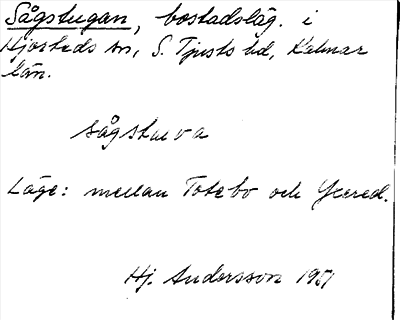 Sågstugan, bostadsläg. i
Hjorteds sn, S. Tjusts hd, Kalmar
län.
sågstuva
Läge: mellan Totebo och
Hj. Andersson 1951